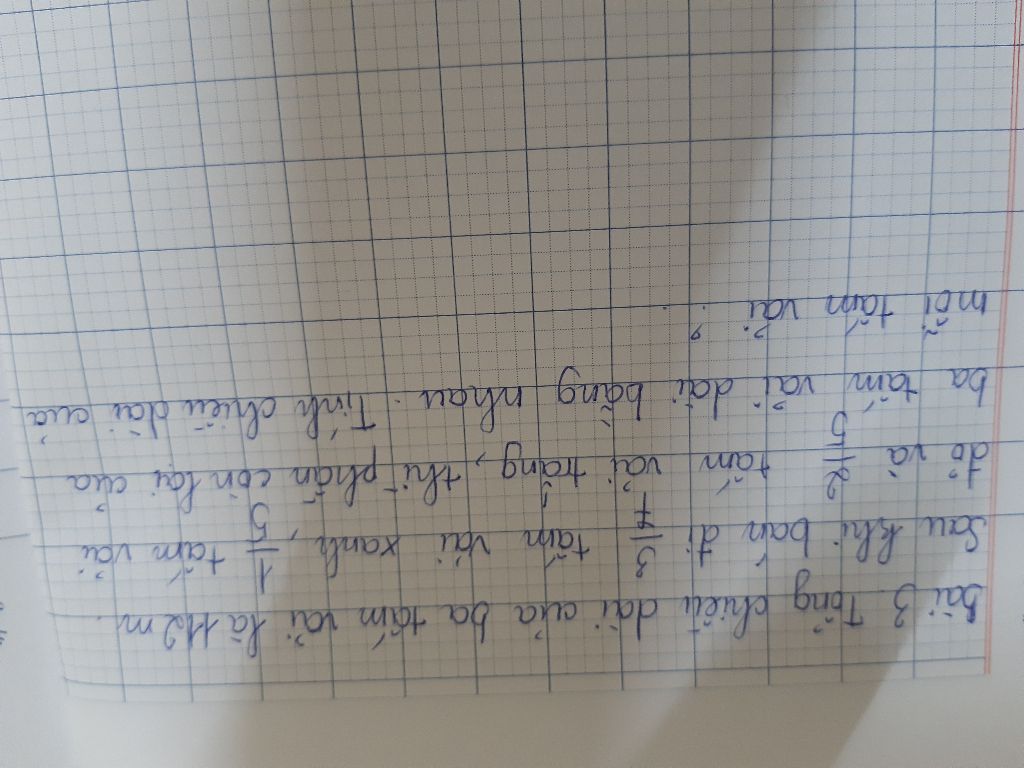 Bài 3. Tổng chiều dài của ba tấm vải là 112 m.
Sau khi bán đi 3/7 tấm vải xanh, 1/5 tấm vải
đỏ và 2/5 tấm vải trắng, thì phần còn lại của
ba tấm vải dài bằng nhau. Tính chiều dài của
mỗi tấm vải ?